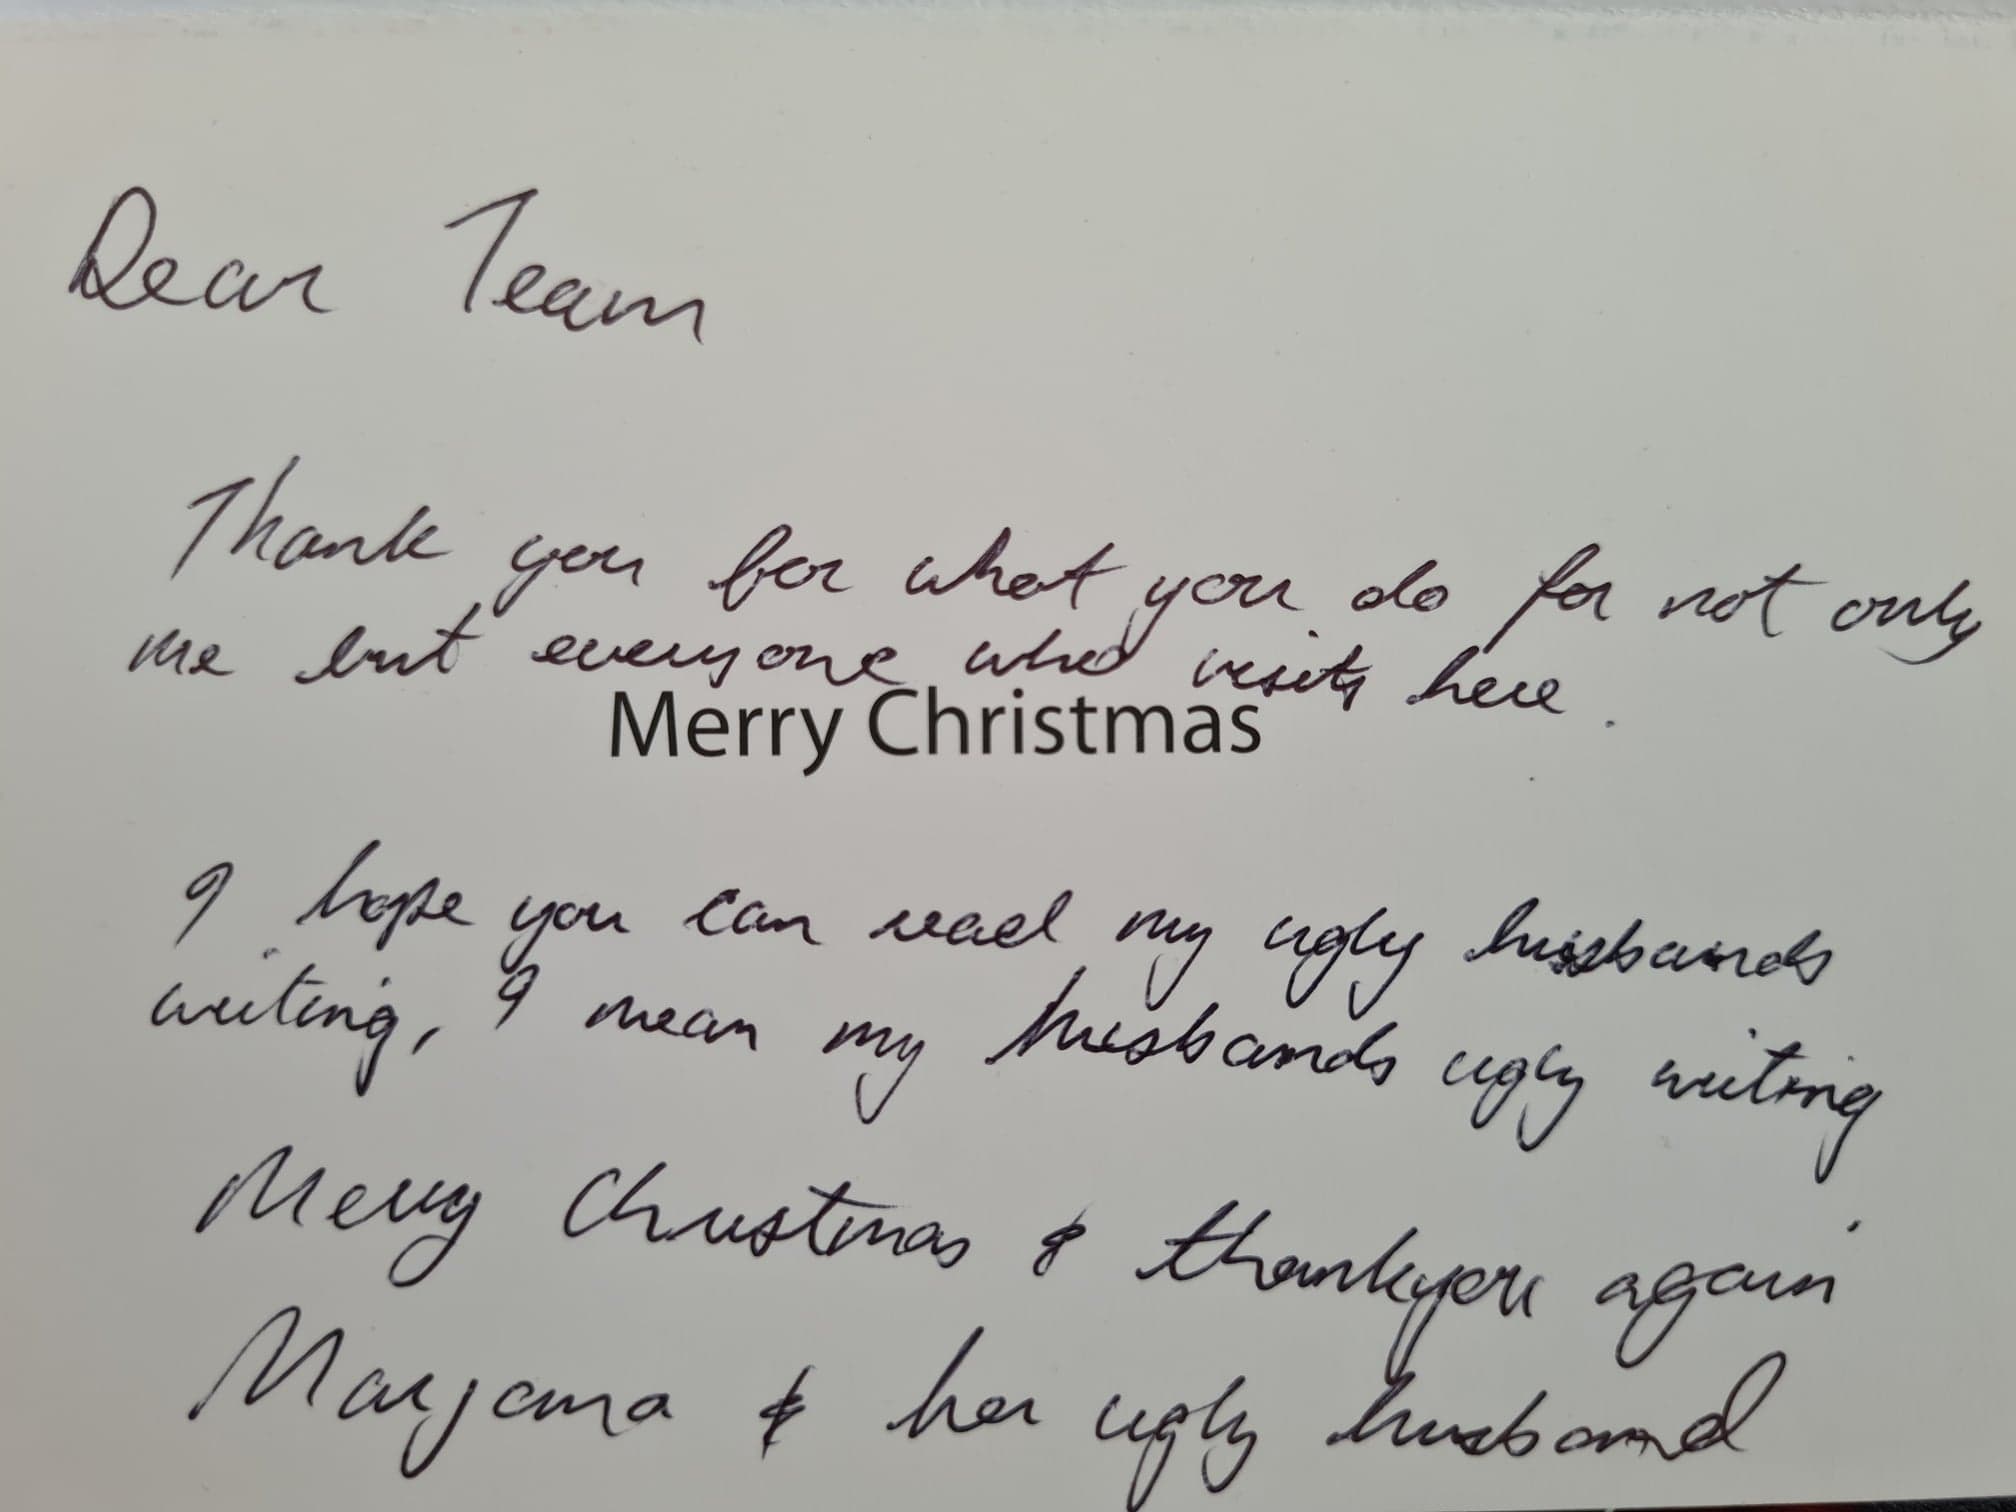 Dear Team
Thank you for what you do for not only
me but everyone who visits here.
Merry Christmas
I hope you can read my ugly husbands
writing, I mean my husbands ugly writing
Merry Christmas & thankyou again
Marjana & her ugly husband